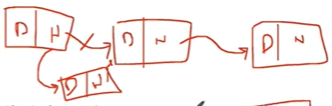 D N D N D N
D N